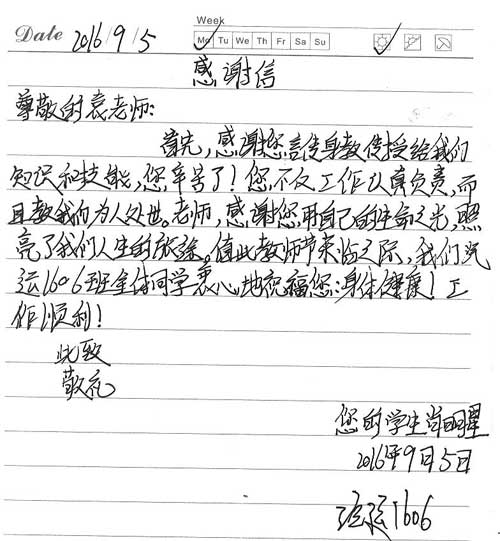 Week
Date 2016/9/5 Mo Tu We Th Fr Sa Su
感谢信
尊敬的袁老师:
首先,感谢您言传身教传授给我们
知识和技能,您辛苦了!您不仅工作认真负责,而
且教我们为人处世。老师,感谢您用自己的生命之光,照
亮了我们人生的旅途。值此教师节来临之际,我们汽
运1606班全体同学衷心地祝福您:身体健康!工
作顺利!
此致
敬礼
您的学生肖明星
2016年9月5日
汽运1606